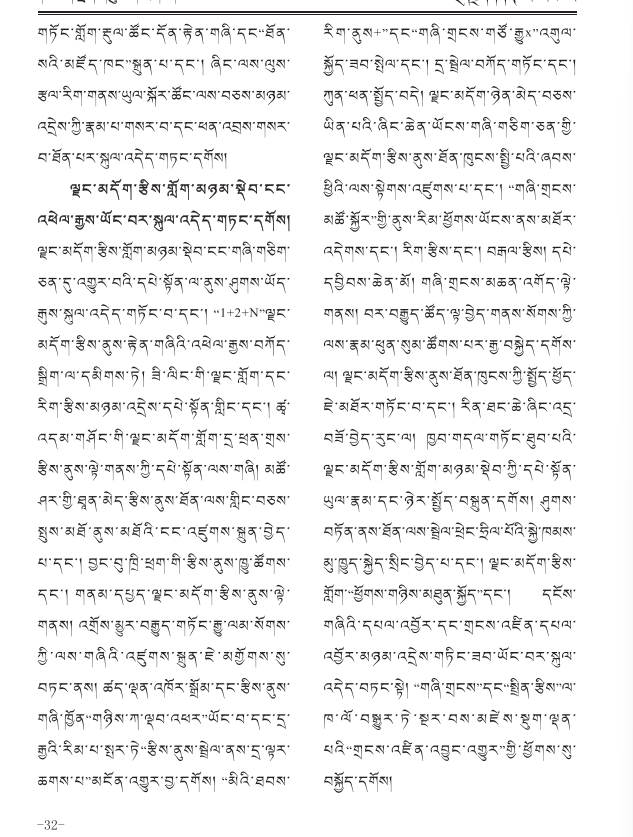 གཏོང་གློག་རྡུལ་ཚོང་དོན་རྟེན་གཞི་དང་“ཐོན་
སའི་མཛོད་ཁང་”སྐྲུན་པ་དང་། ཞིང་ལས་ལུས་
རྩལ་རིག་གནས་ཡུལ་སྐོར་ཚོང་ལས་བཅས་མཉམ་
འདྲེས་ཀྱི་རྣམ་པ་གསར་བ་དང་ཕན་འབྲས་གསར་
བ་ཐོན་པར་སྐུལ་འདེད་གཏང་དགོས།
ལྗང་མདོག་རྩིས་གློག་མཉམ་སྡེབ་ངང་
འཕེལ་རྒྱས་ཡོང་བར་སྐུལ་འདེད་གཏང་དགོས།
ལྗང་མདོག་རྩིས་གློག་མཉམ་སྡེབ་ངང་གཞི་གཅིག་
ཅན་དུ་འགྱུར་བའི་དཔེ་སྟོན་ལ་ནུས་ཤུགས་ཡོད་
རྒུས་སྐུལ་འདེད་གཏོང་བ་དང་། “1+2+N”ལྗང་
མདོག་རྩིས་ནུས་རྟེན་གཞིའི་འཕེལ་རྒྱས་བཀོད་
སྒྲིག་ལ་དམིགས་ཏེ། ཟི་ལིང་གི་ལྗང་གློག་དང་
རིག་རྩིས་མཉམ་འདྲེས་དཔེ་སྟོན་གླིང་དང་། ཚྭ་
འདམ་གཤོང་གི་ལྗང་མདོག་གློག་དྲ་ཕྲན་གྲས་
རྩིས་ནུས་ལྟེ་གནས་ཀྱི་དཔེ་སྟོན་ལས་གཞི། མཚོ་
ཤར་གྱི་ཐན་མེད་རྩིས་ནུས་ཐོན་ལས་གླིང་བཅས་
སྤུས་མཐོ་ནུས་མཐོའི་ངང་འཛུགས་སྐྲུན་བྱེད་
པ་དང་། བྱང་བུ་ཁྲི་ཕྲག་གི་རྩིས་ནུས་ཁྱུ་ཚོགས་
དང་། གནམ་དཔྱད་ལྗང་མདོག་རྩིས་ནུས་ལྟེ་
གནས། འགྲོས་མྱུར་བརྒྱུད་གཏོང་རྒྱུ་ལམ་སོགས་
ཀྱི་ལས་གཞིའི་འཛུགས་སྐྲུན་ཇེ་མགྱོགས་སུ་
བཏང་ནས། ཚད་ལྡན་འཁོར་སྒྲོམ་དང་རྩིས་ནུས་
གཞི་ཁྱོན་“གཉིས་ཀ་ལྡབ་འཕར་”ཡོང་བ་དང་དྲ་
རྒྱའི་རིམ་པ་སྤར་ཏེ་“རྩིས་ནུས་སྦྲེལ་ནས་དྲ་ལྟར་
ཆགས་པ་”མངོན་འགྱུར་བྱ་དགོས། “མིའི་ཐབས་
རིག་ནུས+”དང་“གཞི་གྲངས་གཙོ་རྒྱུx”འགུལ་
སྐྱོད་ཟབ་སྤེལ་དང་། དྲ་སྦྲེལ་བཀོད་གཏོང་དང་།
ཀུན་ཕན་སྤྱོད་བདེ། ལྗང་མདོག་ཉེན་མེད་བཅས་
ཡིན་པའི་ཞིང་ཆེན་ཡོངས་གཞི་གཅིག་ཅན་གྱི་
ལྗང་མདོག་རྩིས་ནུས་ཐོན་ཁུངས་སྤྱི་པའི་ཞབས་
ཕྱིའི་ལས་སྟེགས་འཛུགས་པ་དང་། “གཞི་གྲངས་
མཚོ་སྐྱོར་”གྱི་ནུས་རིམ་ཕྱོགས་ཡོངས་ནས་མཐོར་
འདེགས་དང་། རིག་རྩིས་དང་། བརྒལ་རྩིས། དཔེ་
དབྱིབས་ཆེན་མོ། གཞི་གྲངས་མཆན་འགོད་ལྟེ་
གནས། བར་བརྒྱུད་ཚོད་ལྟ་བྱེད་གནས་སོགས་ཀྱི་
ལས་རྣམ་ཕུན་སུམ་ཚོགས་པར་རྒྱ་བསྐྱེད་དགོས་
ལ། ལྗང་མདོག་རྩིས་ནུས་ཐོན་ཁུངས་ཀྱི་སྤྱོད་ཕྱོད་
ཇེ་མཐོར་གཏོང་བ་དང་། རིན་ཐང་ཆེ་ཞིང་འདྲ་
བཟོ་བྱེད་རུང་ལ། ཁྱབ་གདལ་གཏོང་ཐུབ་པའི་
ལྗང་མདོག་རྩིས་གློག་མཉམ་སྡེབ་ཀྱི་དཔེ་སྟོན་
ཡུལ་རྣམ་དང་ཉེར་སྤྱོད་བསྐྲུན་དགོས། ཤུགས་
བཏོན་ནས་ཐོན་ལས་སྦྲེལ་ཕྲེང་ཧྲིལ་པོའི་སྐྱེ་ཁམས་
མུ་ཁྱུད་སྐྱེད་སྲིང་བྱེད་པ་དང་། ལྗང་མདོག་རྩིས་
གློག་“ཕྱོགས་གཉིས་མཐུན་སྐྱོད་”དང་། དངོས་
གཞིའི་དཔལ་འབྱོར་དང་གྲངས་འཛིན་དཔལ་
འབྱོར་མཉམ་འདྲེས་གཏིང་ཟབ་ཡོང་བར་སྐུལ་
འདེད་བཏང་སྟེ། “གཞི་གྲངས་”དང་“སྤྲིན་རྩིས་”ལ་
ཁ་ལོ་བསྒྱུར་ཏེ་སྔར་བས་མཛེས་སྡུག་ལྡན་
པའི་“གྲངས་འཛིན་འབྱུང་འགྱུར་”གྱི་ཕྱོགས་སུ་
བསྐྱོད་དགོས།
-32-